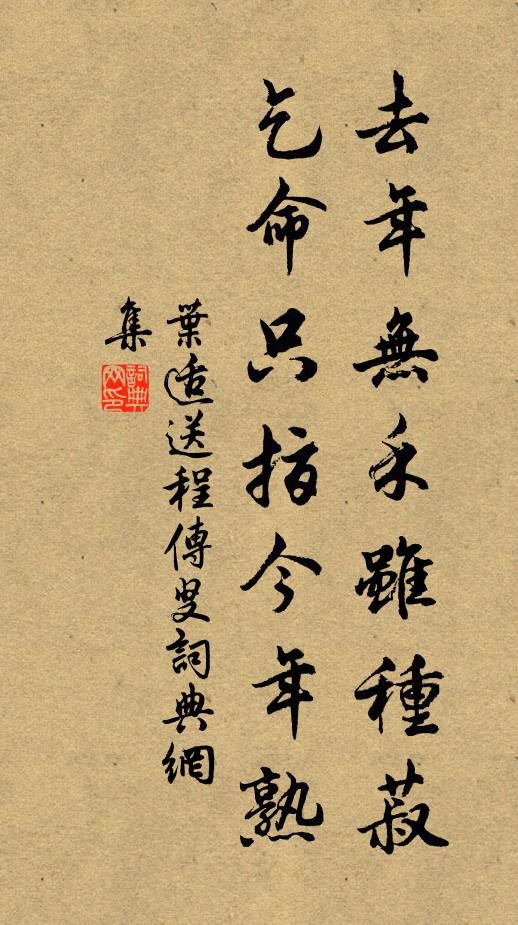 去年無禾雖種菽
乞命只指今年熟
葉适送程傳叟詞典網
集
詞典
网印